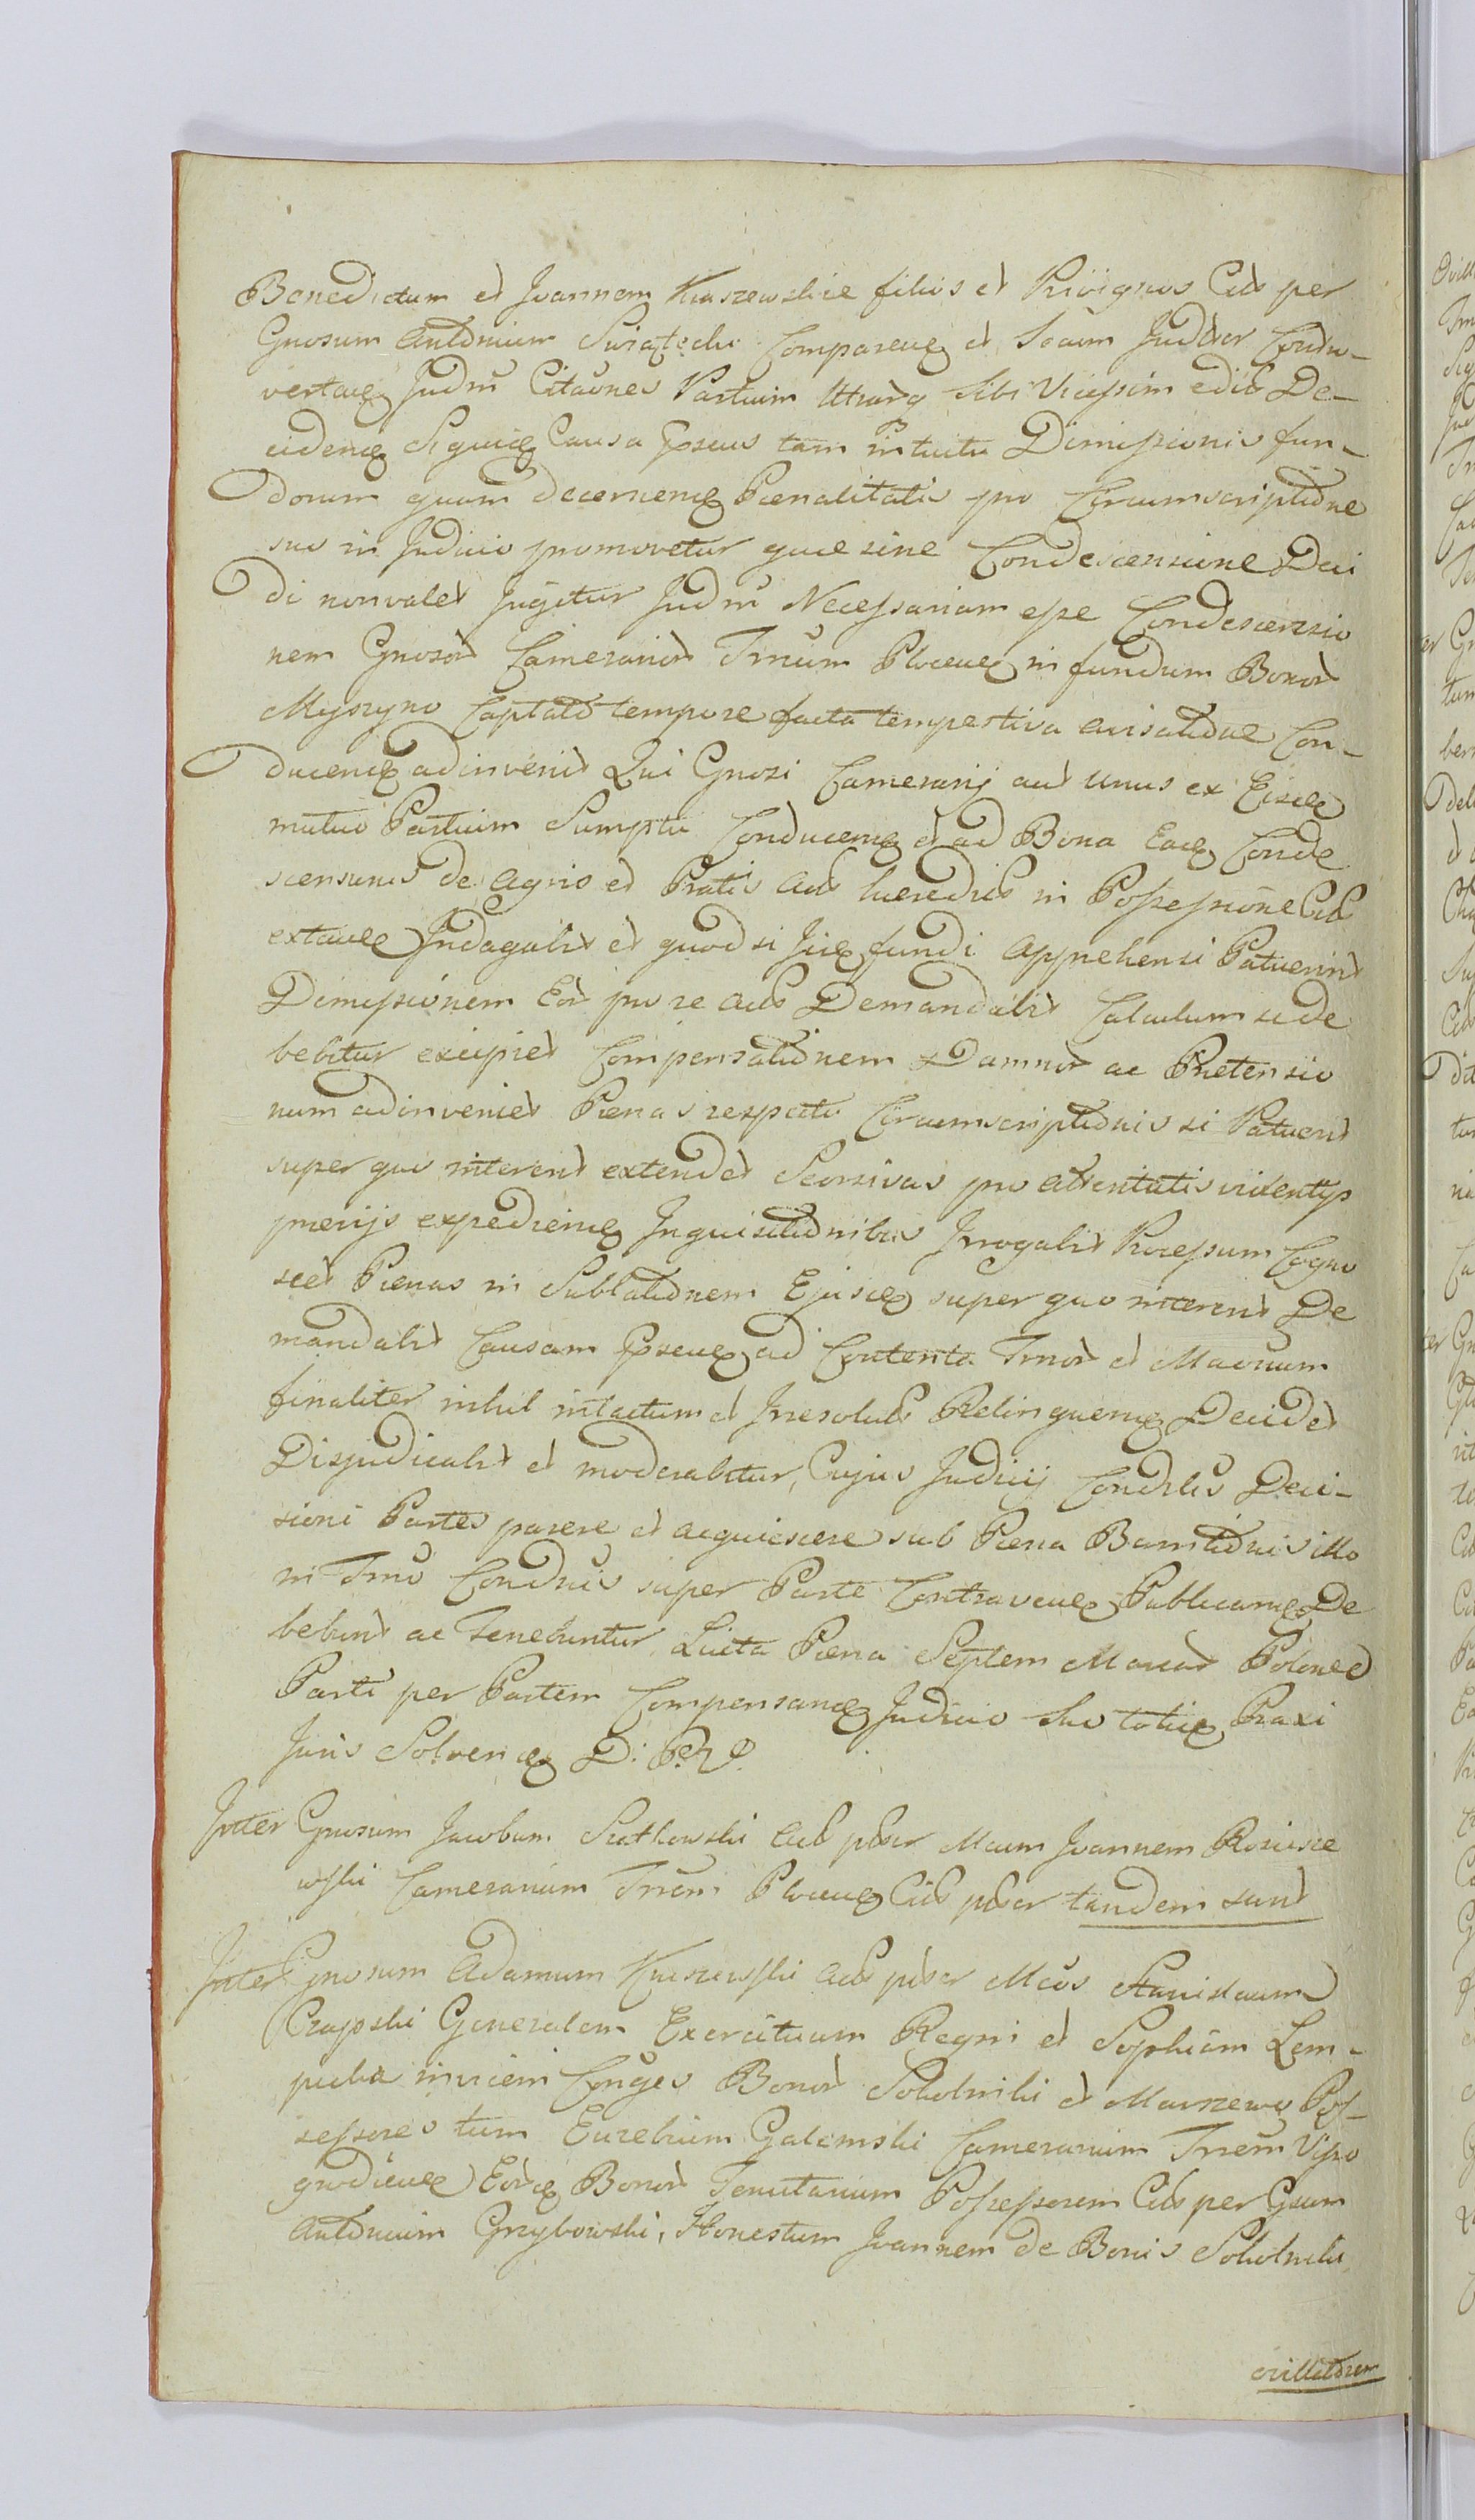 Benedictum et Joannem Kuszewskie filios et Privignos Citt per
Gnosum Antonium Swiątecki Compareng et Seaum Judter Contro-
vertang Judm Citaones Partium Utrarq sibi Vicessim edit De-
cidenq Siquiq Causa Praeus tam intuitu Dimissionis fun-
dorum quam decernenq Paenalitatis pro Circumscriptione
sue in Judicio promovetur quae sine Condescensione Deci
di non valet Jugitur Judm Necessariam esse Condescensio
nem Gnosor Camerarior Trrum Plocenq in fundum Bonor
Myszyno Captato tempore facta tempestiva avisatione Con-
ducenq adinvenit Qui Gnosi Camerarij aut unus ex Eisde
mutuo Partium Sumptu Conducenq et ad Bona Eaq Conde
scensuris de agris et Pratis Act haeredit in Possessione Citt
extanq Indagabit et quod si Jiiq fundi apprehensi Patuerint
Dimissionem Eor pro re acts Demandabit Calculum si de
bebitur excipiet Compensationem Damnor ac Praetensio
num adinveniet Paenas respectu Circumscriptionis si Patuerit
super quo intererit extendet Seorsivas pro attentatis violentijs
praevijs expedienq Inquisitionibus Irrogabit Processum Cogno
scet Paenas in Sublationem Ejusdq super quo intererit De
mandabit Causam Praeng ad Contenta Trmor et Macnum
finaliter nihil intactum et Irresolut Relinquenq Decidet
Disjudicabit et moderabitur, Cujus Judicij Condlis Deci-
sioni Partes parere et acquiescere sub Paena Bannitionis illo
in Trmo Condnis super Parte Contraveng Publicanq De
bebunt ac Tenebuntur Lucta Paena Septem Marcar Polonec
Parti per Partem Compensanq Judicio suo totiq Praxi
Juris Solvenq D: P: R D
Inter Gnosum Jacobum Rutkowski Act pter Mcum Joannem Rosiesze
wski Camerarium Trrum Plocenq Citt pter tandem sunt
Inter Gnosum Adamum Kuszewski Act pter Mcos Stanislaum
Czapski Generalem Exercituum Regni et Sophiam Lem-
picka invicem Conges Bonor Sokolniki et Marszewo Pos-
sessores tum Eusebium Galemski Camerarium Trrum Vysso
grodieng Eordq Bonor Tenutarium Possessorem Citt per Gsum
Antonium Grzybowski, Honestum Joannem de Bonis Sokolniki
ovillatorem